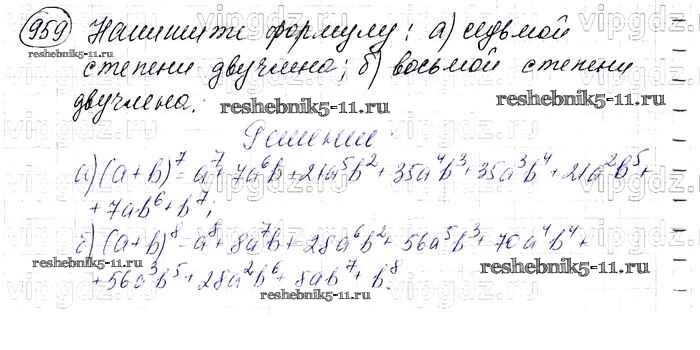 959 Напишите формулу: а) седьмой
степени двучлена; б) восьмой степени
двучлена.
reshebnik5-11.ru
reshebnik5-11.ru
Решение
а) (a+b)⁷ = a⁷ + 7a⁶b + 21a⁵b² + 35a⁴b³ + 35a³b⁴ + 21a²b⁵ +
+ 7ab⁶ + b⁷;
б) (a+b)⁸ = a⁸ + 8a⁷b + 28a⁶b² + 56a⁵b³ + 70a⁴b⁴ +
reshebnik5-11.ru
reshebnik5-11.ru
+ 56a³b⁵ + 28a²b⁶ + 8ab⁷ + b⁸.
reshebnik5-11.ru
vipgdz.com